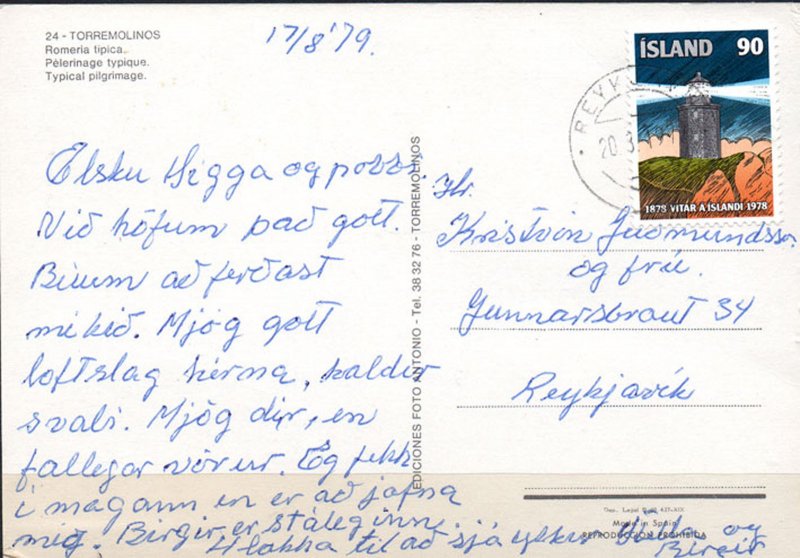 24 - TORREMOLINOS
Romería típica.
Pèlerinage typique.
Typical pilgrimage.
17/8 '79.
Elsku Sigga og
Við höfum það gott.
Búum að ferðast
mikið. Mjög gott
loftslag hérna, kaldur
svali. Mjög dir, en
fallegar vörur. Ég fekk
í magann en er að jafna
mig. Birgir er stáleginn.
Hlakka til að sjá ykkur og
Birgir
EDICIONES FOTO ANTONIO - Tel. 38 32 76 - TORREMOLINOS
ÍSLAND 90
1878 VITAR Á ÍSLANDI 1978
REYKJAVÍK
20
Hr.
Kristinn Guðmundsson
og frú.
Gunnarsbraut 34
Reykjavík
Dep. Legal B. 437-XIX
Made in Spain
REPRODUCCIÓN PROHIBIDA